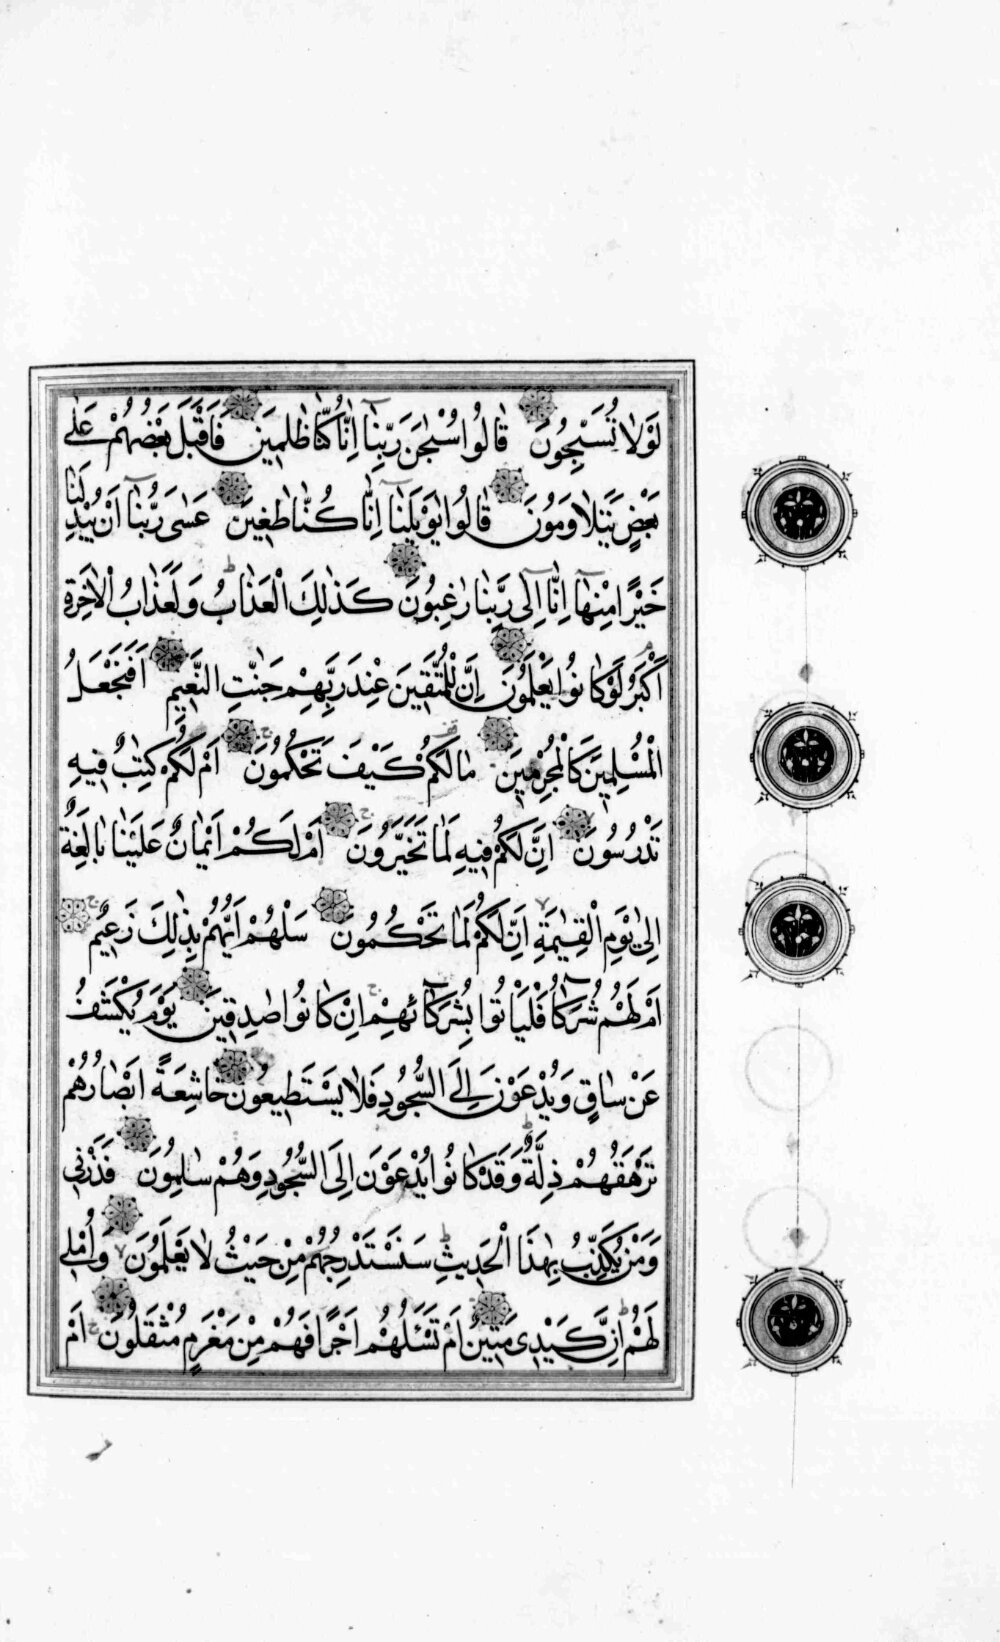 لَوْلَا تُسَبِّحُونَ قَالُوا سُبْحٰنَ رَبِّنَآ اِنَّا كُنَّا ظٰلِمٖينَ فَاَقْبَلَ بَعْضُهُمْ عَلٰى
بَعْضٍ يَتَلَاوَمُونَ قَالُوا يٰوَيْلَنَآ اِنَّا كُنَّا طَاغٖينَ عَسٰى رَبُّنَآ اَنْ يُبْدِلَنَا
خَيْرًا مِنْهَآ اِنَّآ اِلٰى رَبِّنَا رَاغِبُونَ كَذٰلِكَ الْعَذَابُ وَلَعَذَابُ الْاٰخِرَةِ
اَكْبَرُ لَوْ كَانُوا يَعْلَمُونَ اِنَّ لِلْمُتَّقٖينَ عِنْدَ رَبِّهِمْ جَنّٰتِ النَّعٖيمِ اَفَنَجْعَلُ
الْمُسْلِمٖينَ كَالْمُجْرِمٖينَ مَا لَكُمْ كَيْفَ تَحْكُمُونَ اَمْ لَكُمْ كِتٰبٌ فٖيهِ
تَدْرُسُونَ اِنَّ لَكُمْ فٖيهِ لَمَا تَخَيَّرُونَ اَمْ لَكُمْ اَيْمَانٌ عَلَيْنَا بَالِغَةٌ
اِلٰى يَوْمِ الْقِيٰمَةِ اِنَّ لَكُمْ لَمَا تَحْكُمُونَ سَلْهُمْ اَيُّهُمْ بِذٰلِكَ زَعٖيمٌ
اَمْ لَهُمْ شُرَكَآءُ فَلْيَاْتُوا بِشُرَكَآئِهِمْ اِنْ كَانُوا صَادِقٖينَ يَوْمَ يُكْشَفُ
عَنْ سَاقٍ وَيُدْعَوْنَ اِلَى السُّجُودِ فَلَا يَسْتَطٖيعُونَ خَاشِعَةً اَبْصَارُهُمْ
تَرْهَقُهُمْ ذِلَّةٌ وَقَدْ كَانُوا يُدْعَوْنَ اِلَى السُّجُودِ وَهُمْ سَالِمُونَ فَذَرْنٖي
وَمَنْ يُكَذِّبُ بِهٰذَا الْحَدٖيثِ سَنَسْتَدْرِجُهُمْ مِنْ حَيْثُ لَا يَعْلَمُونَ وَاُمْلٖي
لَهُمْ اِنَّ كَيْدٖي مَتٖينٌ اَمْ تَسْـَٔلُهُمْ اَجْرًا فَهُمْ مِنْ مَغْرَمٍ مُثْقَلُونَ اَمْ